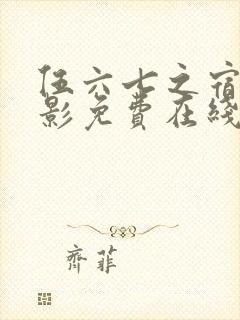 伍六七之宿
影免费在线
齐菲